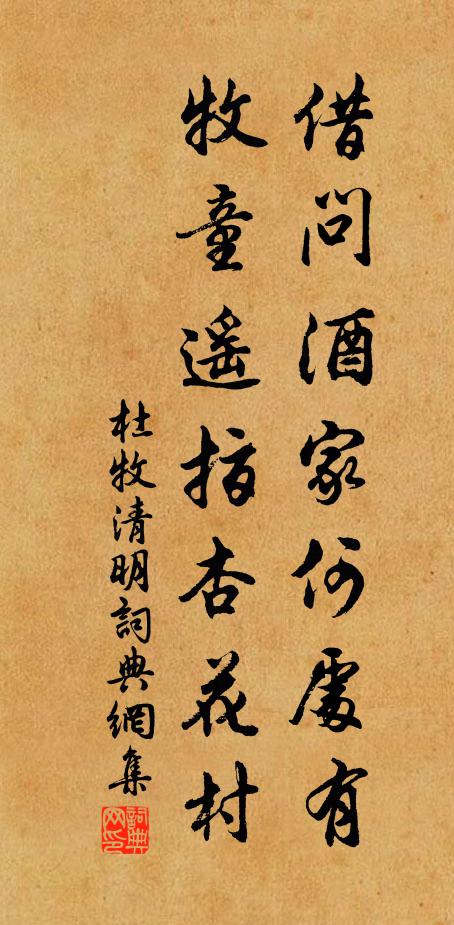 借問酒家何處有
牧童遥指杏花村
杜牧清明詞典網集
詞典网印